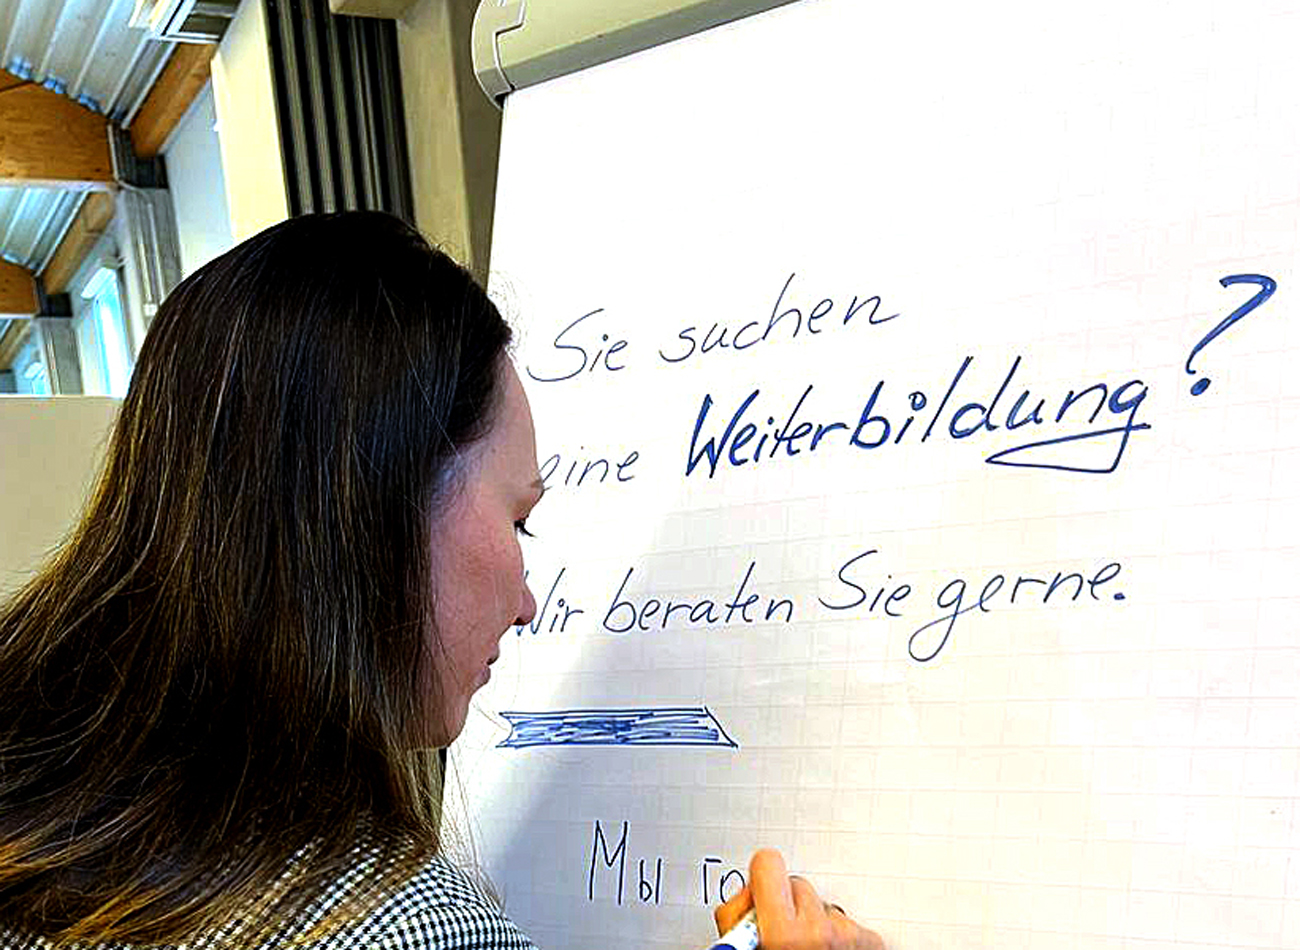 Sie suchen
eine Weiterbildung?
Wir beraten Sie gerne.
Мы го